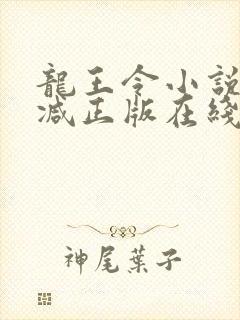 龍王令小說
減正版在綫
神尾葉子